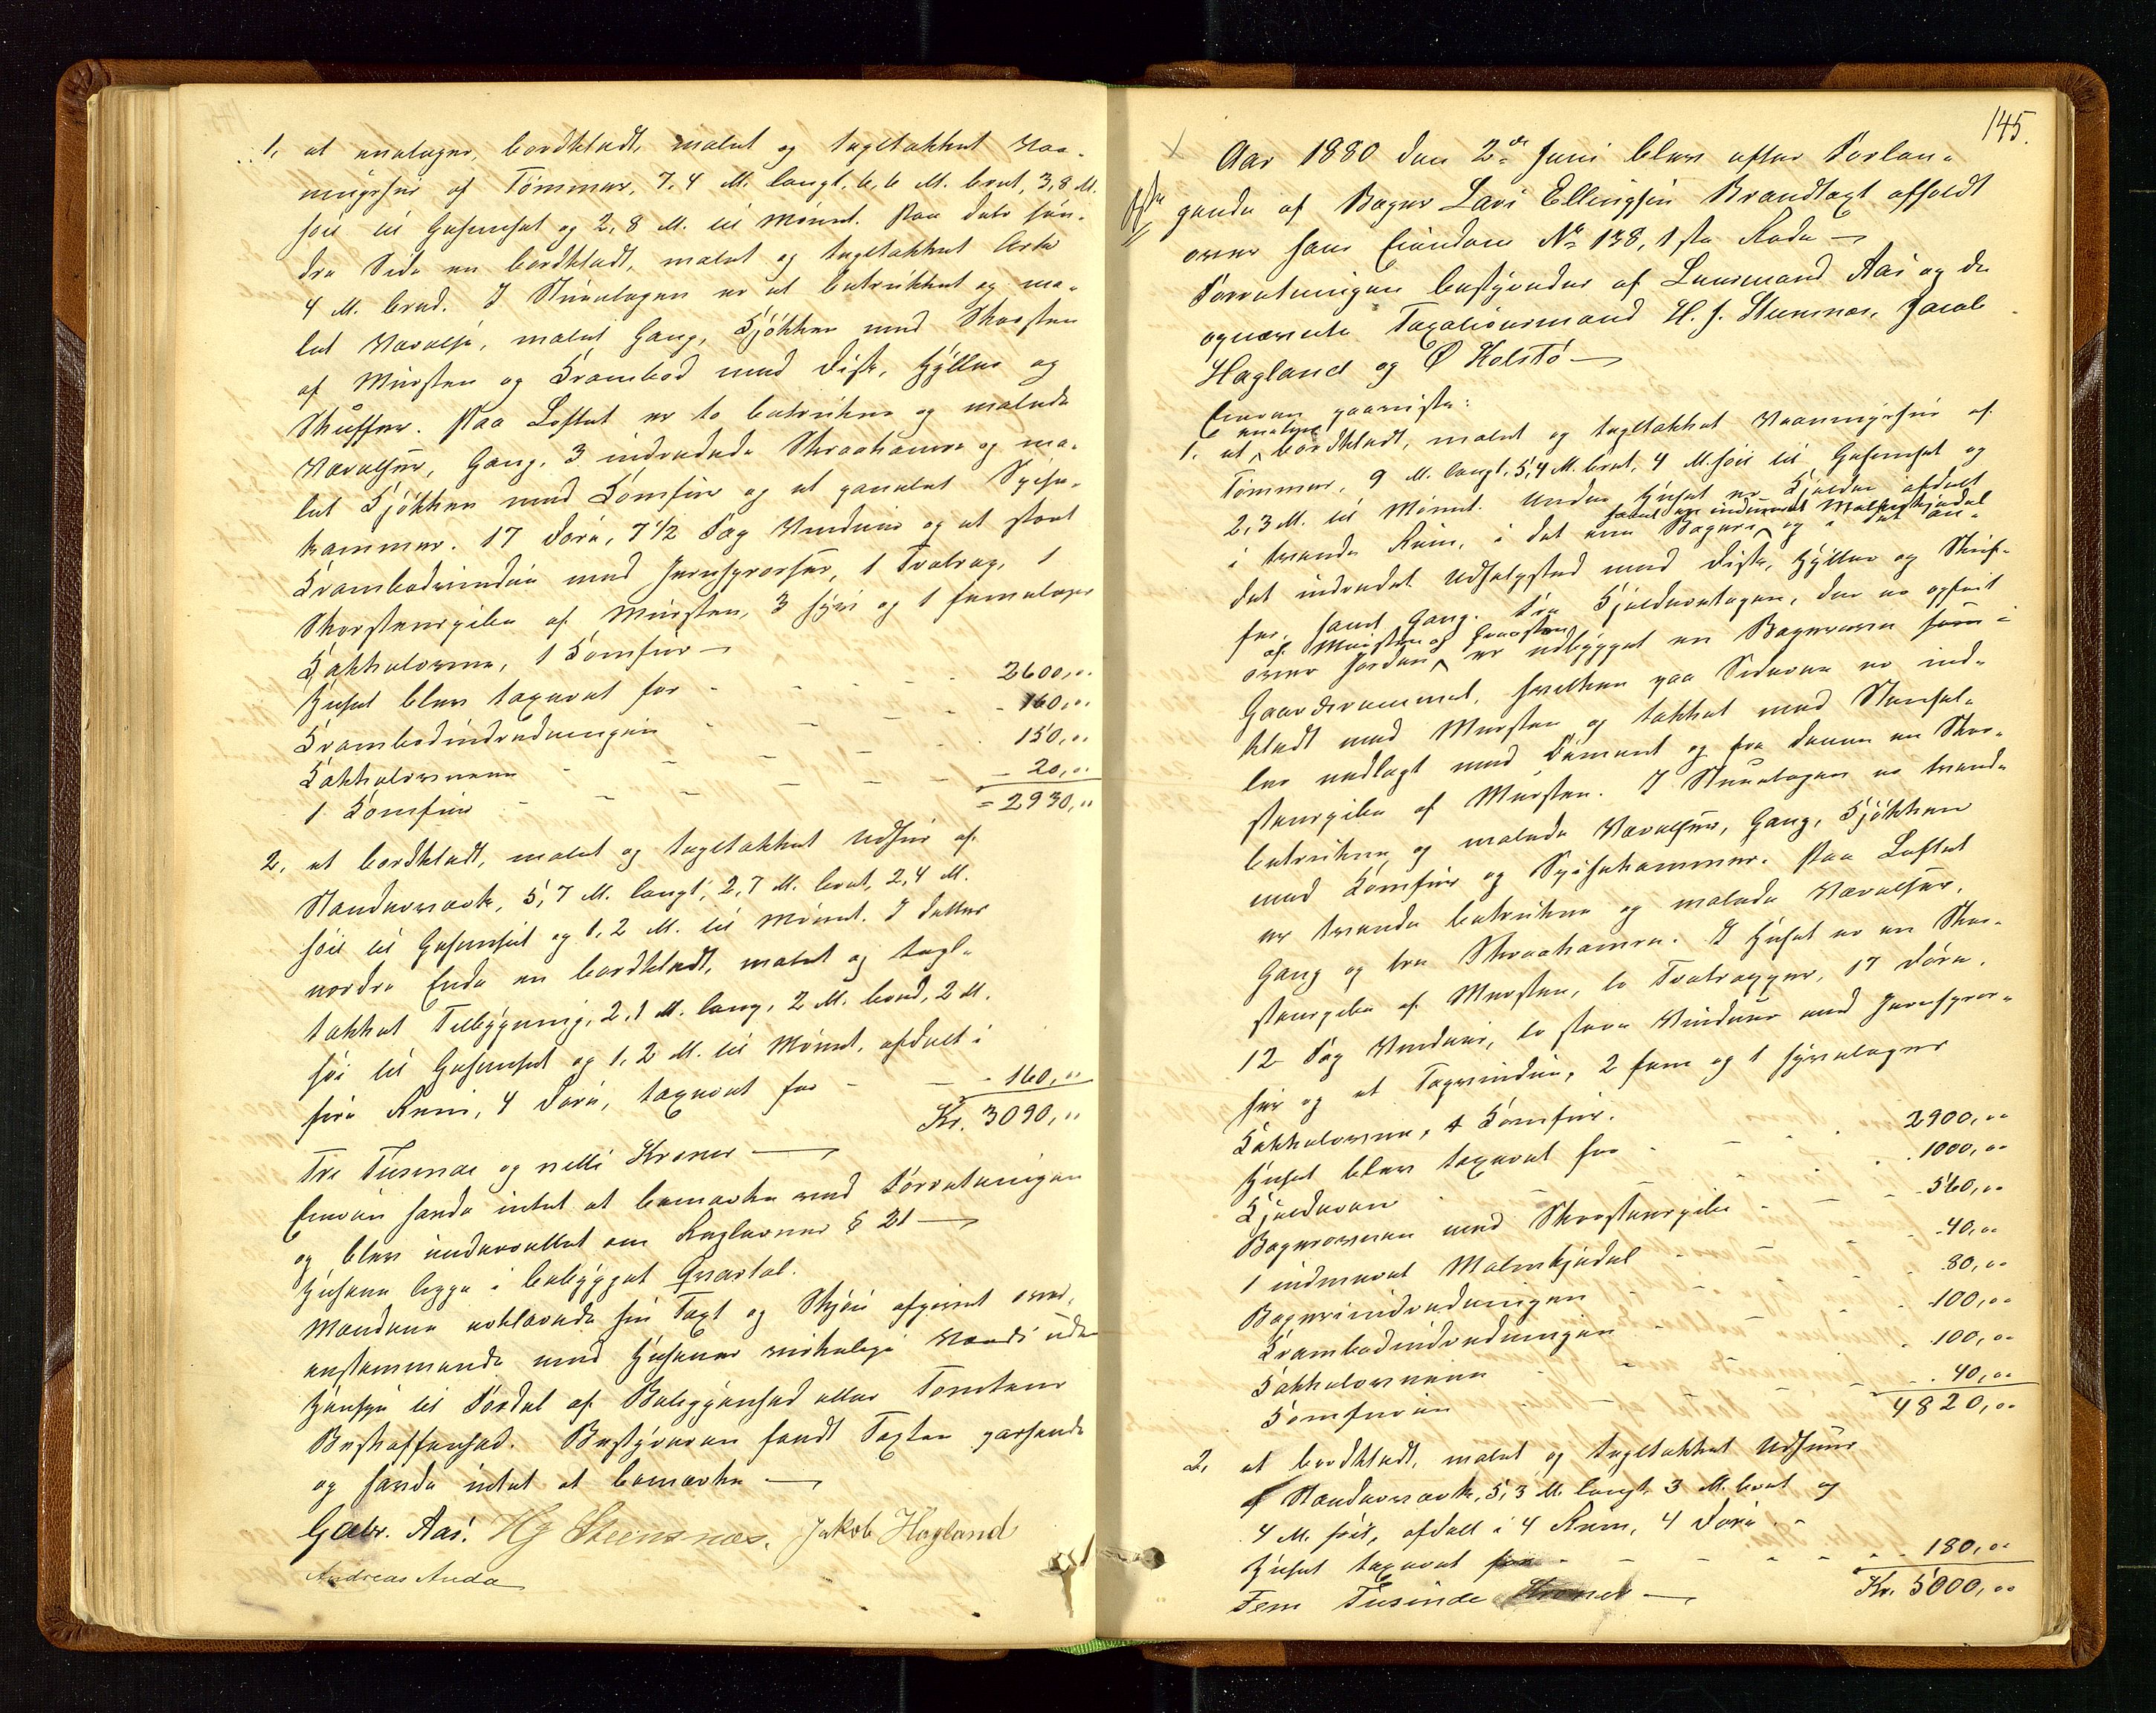 1, et enetages, bordklædt, malet og tegltækket Vaa-
ningshus af Tømmer, 7,4 M. langt, 6,6 M. bret, 3,8 M.
høit til Gesimset og 2,8 M. til Mønnet. Paa dets søn-
dre Side en bordklædt, malet og tegltækket Ark
4 M. bred. I Stuetagen er et betrukket og ma-
let Værelse, malet Gang, Kjøkken med Skorsten
af Mursten og Krambod med Disk, Hylder og
Skuffer. Paa Loftet er to betrukne og malede
Værelser, Gang, 3 indredede Skraakamre og ma-
let Kjøkken med Komfur og et panelet Spise-
kammer. 17 Døre, 7 1/2 Fag Vinduer og et stort
Krambodvindu med Jernsprosser, 1 Trætrap, 1
Skorstenspibe af Mursten, 3 høi og 1 femetages
Kakkelovne, 1 Komfur —
Huset blev taxeret for - - - - 2600,00
Krambodindredningen - - - - 160,00
Kakkelovnene - - - - 150,00
1 Komfur - - - - 20,00
= 2930,00
2, et bordklædt, malet og tegltækket Udhus af
Stænderværk, 5,7 M. langt, 2,7 M. bret, 2,4 M.
høit til Gesimset og 1,2 M. til Mønnet. I dettes
nordre Ende en bordklædt, malet og tegl-
tækket Tilbygning, 2,1 M. lang, 2 M. bred, 2 M.
høi til Gesimset og 1,2 M. til Mønnet, afdelt i
fire Rum, 4 Døre, taxeret for - - 160,00
Kr. 3090,00
Tre Tusinde og nitti Kroner —
Eieren havde intet at bemærke ved Forretningen
og blev underrettet om Reglernes § 21 —
Husene ligge i bebygget Qvartal.
Mændene erklærede sin Taxt og Skjøn afgivet over-
enstemmende med Husenes virkelige Værdi uden
Hensyn til Fordel af Beliggenhed eller Tomtens
Beskaffenhed. Bestyreren fandt Taxten passende
og havde intet at bemærke —
Gabr. Aas. Hj Steensnæs. Jakob Hagland
Andreas Anda
145.
Aar 1880 den 2den Juni blev efter Forlan-
gende af Bager Lars Ellingsen Brandtaxt afholdt
over hans Eiendom No 138, 1ste Rode —
Forretningen bestyredes af Lensmand Aas og de
opnævnte Taxationsmænd H. J. Steensnæs, Jacob
Hagland og Ø Kolstø —
Eieren paaviste:
enetages
1. et bordklædt, malet og tegltækket Vaaningshus af
Tømmer, 9 M. langt, 5,4 M. bret, 4 M. høit til Gesimset og
2,3 M. til Mønnet. Under Huset er Kjelder afdelt
samt en indmuret Malmkjedel
i tvende Rum, i det ene Bageri og i det an-
det indredet Udsalgssted med Disk, Hylder og Skuf-
fer, samt Gang. Fra Kjelderetagen, der er opført
af Mursten og Graasten
over Jorden er udbygget en Bagerovn som i
Gaardsrummet, hvilken paa Siderne er ind-
klædt med Mursten og tækket med Stenhel-
ler nedlagt med Cement og fra denne en Skor-
stenspibe af Mursten. I Stuetagen er tvende
betrukne og malede Værelser, Gang, Kjøkken
med Komfur og Spisekammer. Paa Loftet
er tvende betrukne og malede Værelser,
Gang og tre Skraakamre. I Huset er en Skor-
stenspibe af Mursten, to Trætrapper, 17 Døre,
12 Fag Vinduer, to store Vinduer med Jernspros-
ser og et Tagvindu, 2 fem og 1 høietages
Kakkelovne, 1 Komfur.
Huset blev taxeret for - - - - 2900,00
Kjelderen - - - - 1000,00
Bagerovnen med Skorstenspibe - - - 560,00
1 indmuret Malmkjedel - - - 40,00
Bageriindredningen - - - 80,00
Krambodindredningen - - - 100,00
Kakkelovnene - - - 100,00
Komfuren - - - 40,00
4820,00
2, et bordklædt, malet og tegltækket Udhus
af Stænderværk, 5,3 M. langt, 3 M. bret og
4 M. høit, afdelt i 4 Rum, 4 Døre. -
Huset taxeret for - - - - 180,00
Kr. 5000,00
Fem Tusinde Kroner —